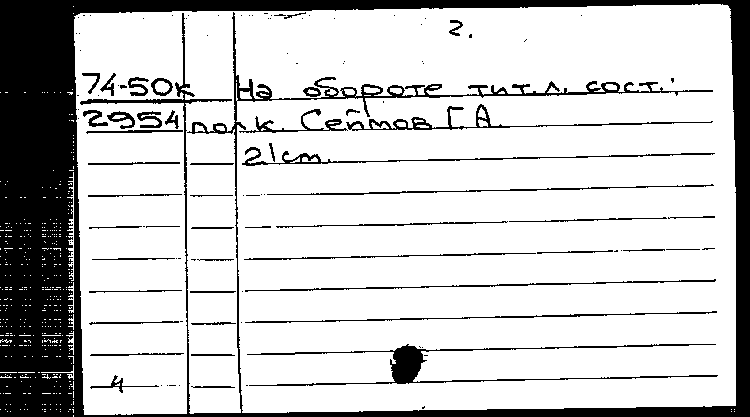 2.
74-50к На обороте тит.л. сост.:
2954 полк. Сейтов Г.А.
21 cm.
4